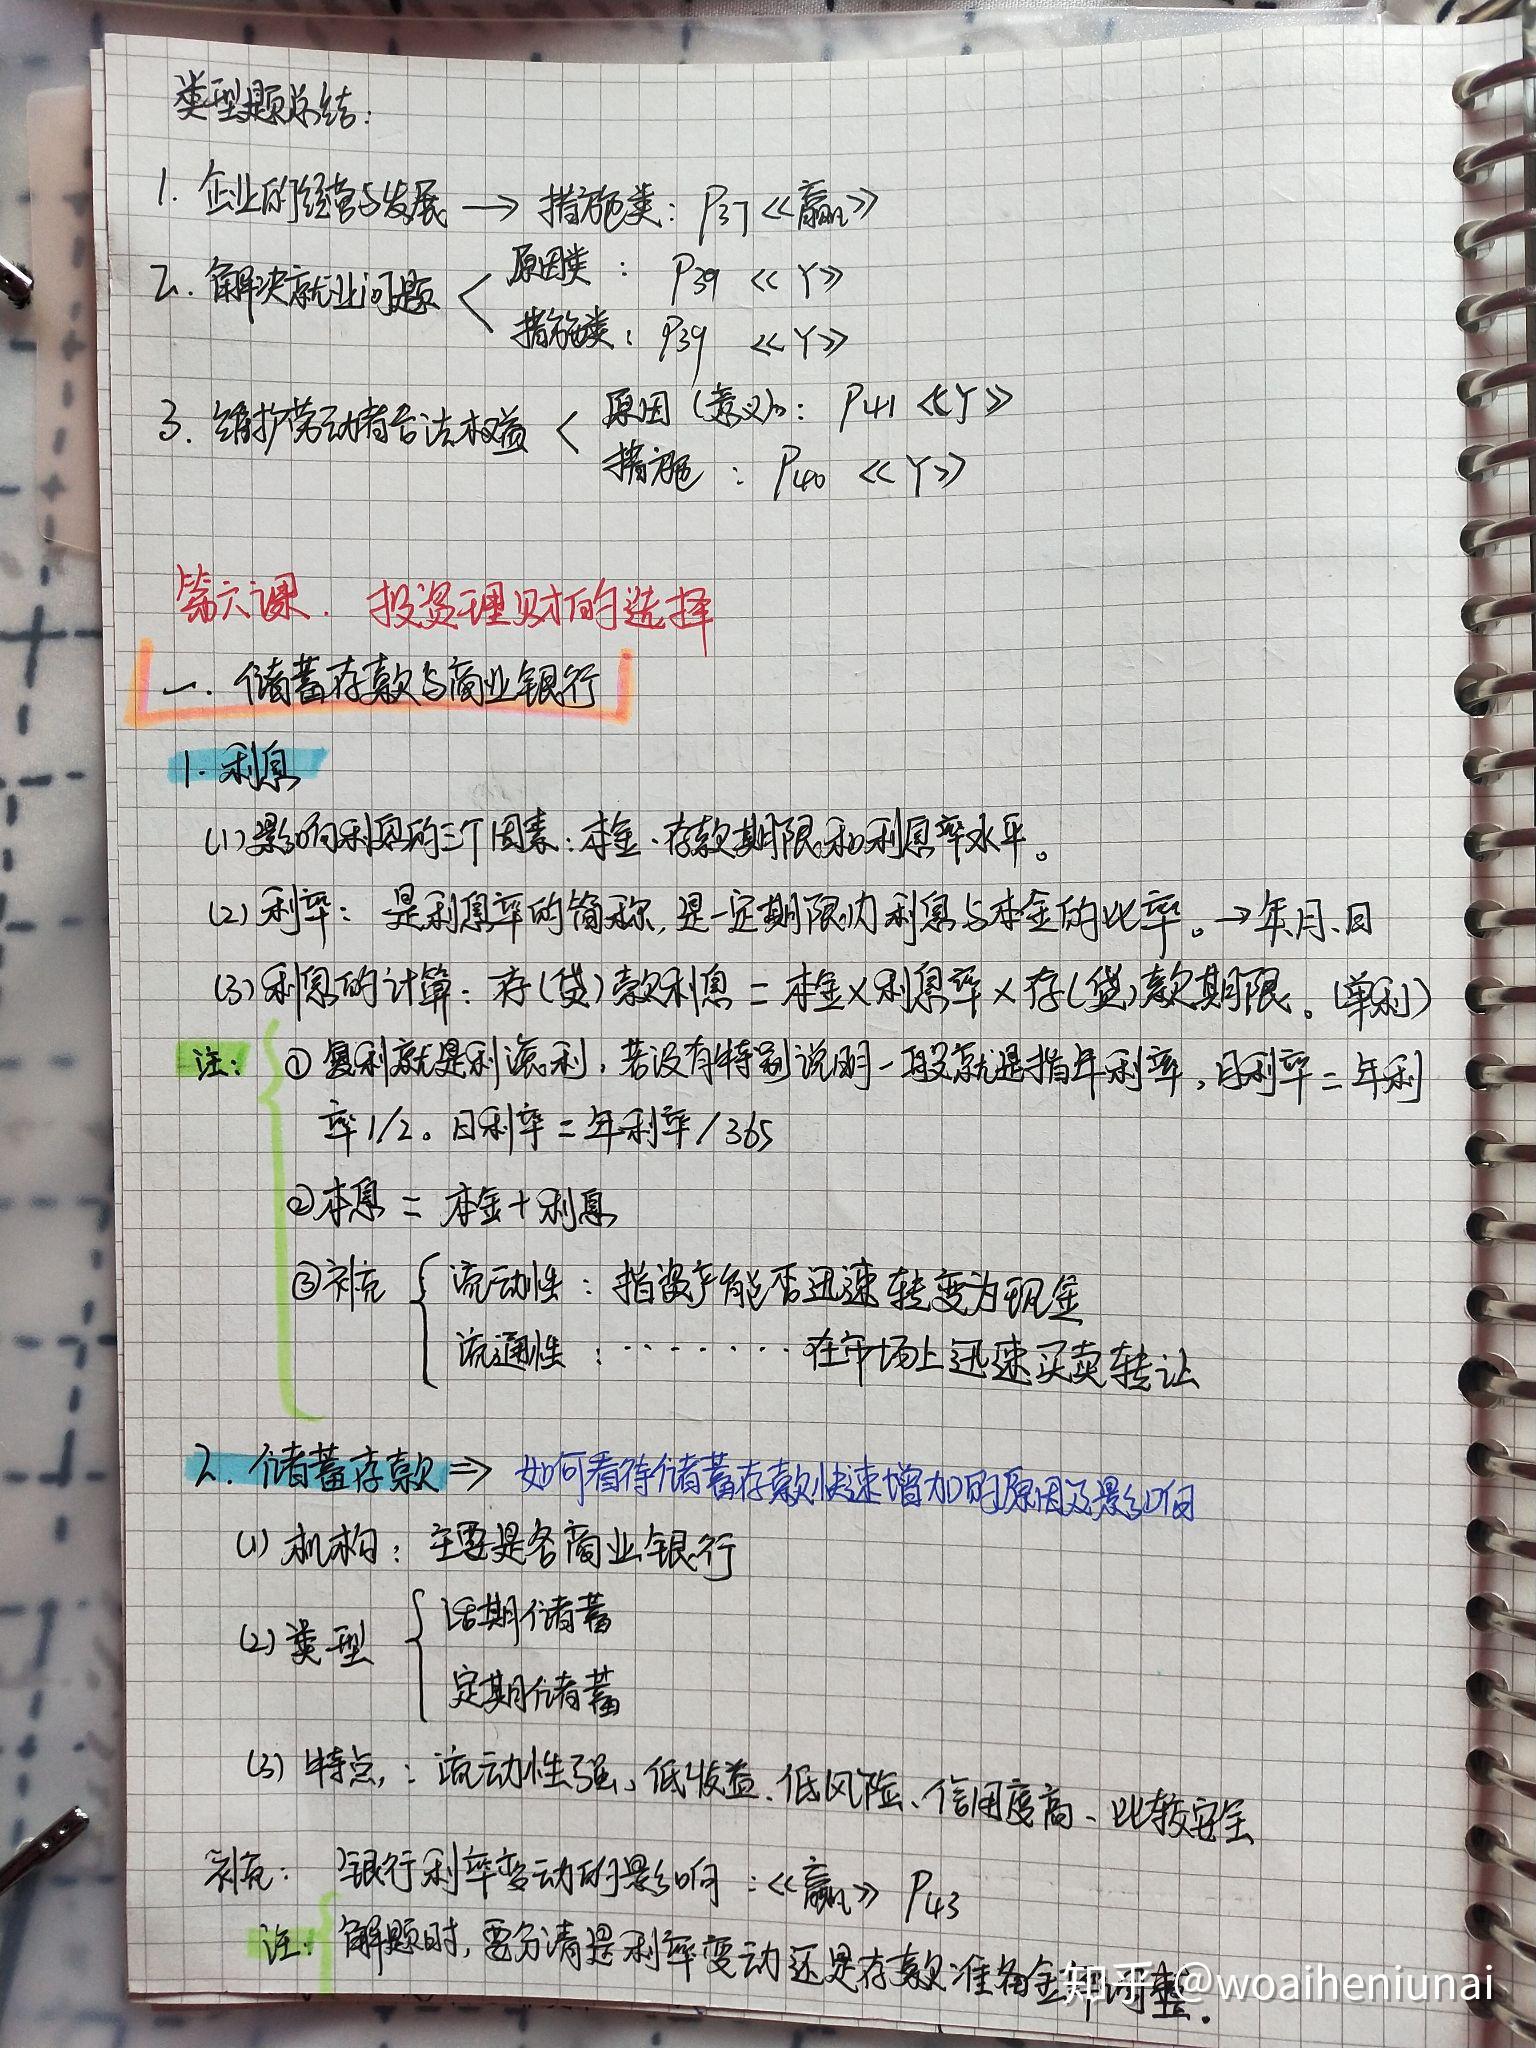 类型题总结:
1. 企业的经营与发展 → 措施类: P37 《赢》
2. 解决就业问题 < 原因类: P39 《Y》
措施类: P39 《Y》
3. 维护劳动者合法权益 < 原因(意义): P41 《Y》
措施: P40 《Y》
第六课. 投资理财的选择
一. 储蓄存款与商业银行
1. 利息
(1) 影响利息的三个因素:本金、存款期限和利息率水平。
(2) 利率: 是利息率的简称,是一定期限内利息与本金的比率。→年、月、日
(3) 利息的计算: 存(贷)款利息 = 本金×利息率×存(贷)款期限。(单利)
注: ① 复利就是利滚利,若没有特别说明一般就是指年利率,月利率=年利
率1/2。日利率=年利率/365
②本息 = 本金+利息
③补充 { 流动性: 指资产能否迅速转变为现金
流通性: ········在市场上迅速买卖转让
2. 储蓄存款 ⇒ 如何看待储蓄存款快速增加的原因及影响
(1) 机构: 主要是各商业银行
(2) 类型 { 活期储蓄
定期储蓄
(3) 特点: 流动性强、低收益、低风险、信用度高、比较安全
补充: 银行利率变动的影响:《赢》 P43
注: 解题时,要分清是利率变动还是存款准备金率调整.
知乎 @woaiheniunai